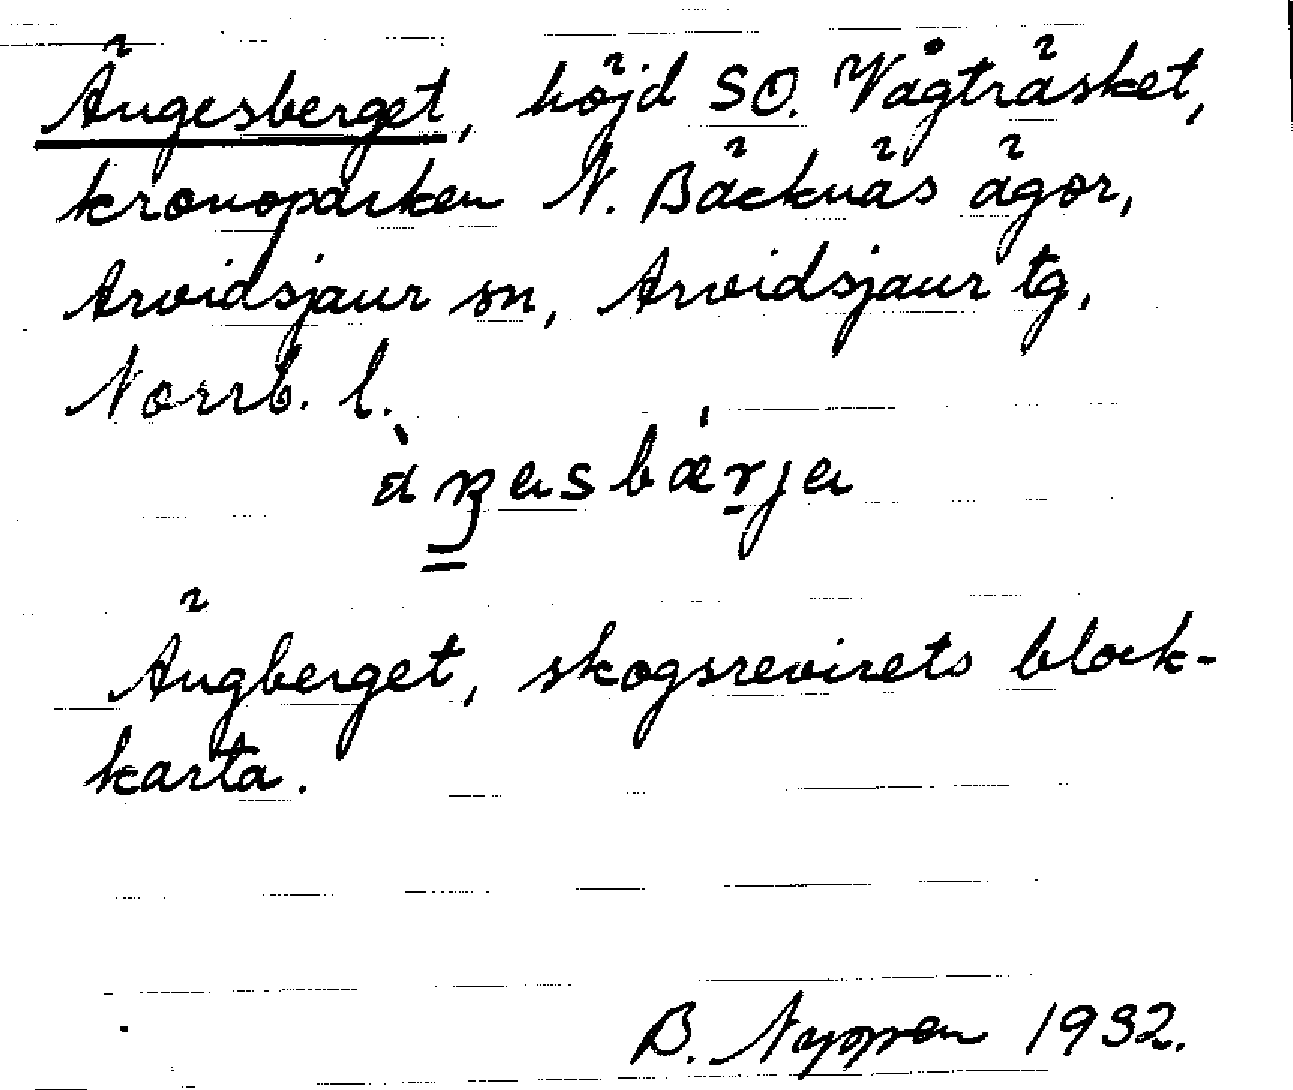 Ängesberget, höjd SO. Vågträsket,
kronoparken N. Bäcknäs ägor,
Arvidsjaur sn, Arvidsjaur tg,
Norrb. l.
Ängberget, skogsrevirets block-
karta.
B. 1932.